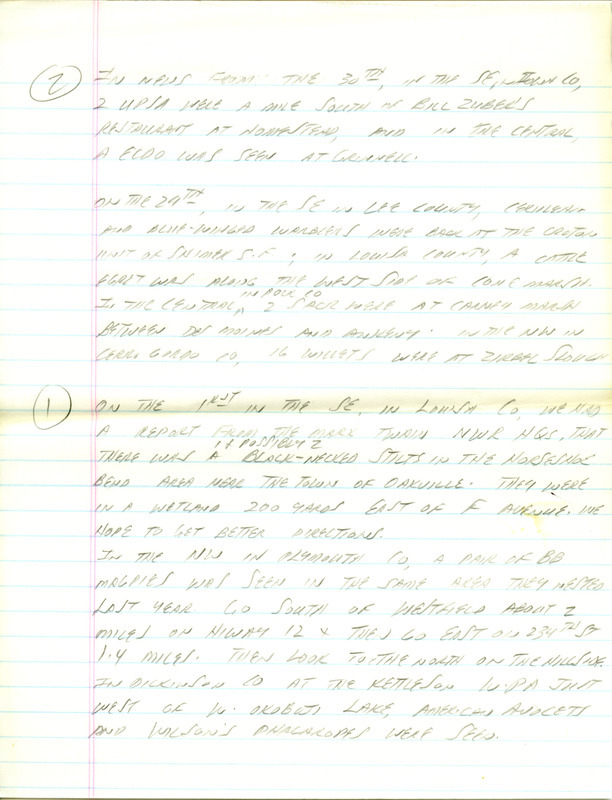 2
IN NEWS FROM THE 30TH, IN THE SE, IN IOWA CO,
2 UPSA WERE A MILE SOUTH OF BILL ZUBER'S
RESTAURANT AT HOMESTEAD, AND IN THE CENTRAL,
A ECDO WAS SEEN AT GRINNELL.
ON THE 29TH, IN THE SE IN LEE COUNTY, CERULEAN
AND BLUE-WINGED WARBLERS WERE BACK AT THE CROTON
UNIT OF SHIMEK S.F; IN LOUISA COUNTY, A CATTLE
EGRET WAS ALONG THE WEST SIDE OF CONE MARSH.
IN THE CENTRAL, IN POLK CO 2 SACR WERE AT CARNEY MARSH
BETWEEN DES MOINES AND ANKENY. IN THE NW IN
CERRO GORDO CO, 16 WILLETS WERE AT ZIRBEL SLOUGH
1
ON THE 1RST IN THE SE, IN LOUISA CO, WE HAD
A REPORT FROM THE MARK TWAIN NWR HQS, THAT
THERE WAS A POSSIBLY 2 BLACK-NECKED STILTS IN THE HORSESHOE
BEND AREA NEAR THE TOWN OF OAKVILLE. THEY WERE
IN A WETLAND 200 YARDS EAST OF F AVENUE. WE
HOPE TO GET BETTER DIRECTIONS.
IN THE NW IN PLYMOUTH CO, A PAIR OF BB
MAGPIES WAS SEEN IN THE SAME AREA THEY NESTED
LAST YEAR. GO SOUTH OF WESTFIELD ABOUT 2
MILES ON HIWAY 12 & THEN GO EAST ON 234TH ST
1.4 MILES. THEN LOOK TO THE NORTH ON THE HILLSIDE.
IN DICKINSON CO AT THE KETTLESON W.PA JUST
WEST OF W. OKOBOJI LAKE, AMERICAN AVOCETS
AND WILSON'S PHALAROPES WERE SEEN.